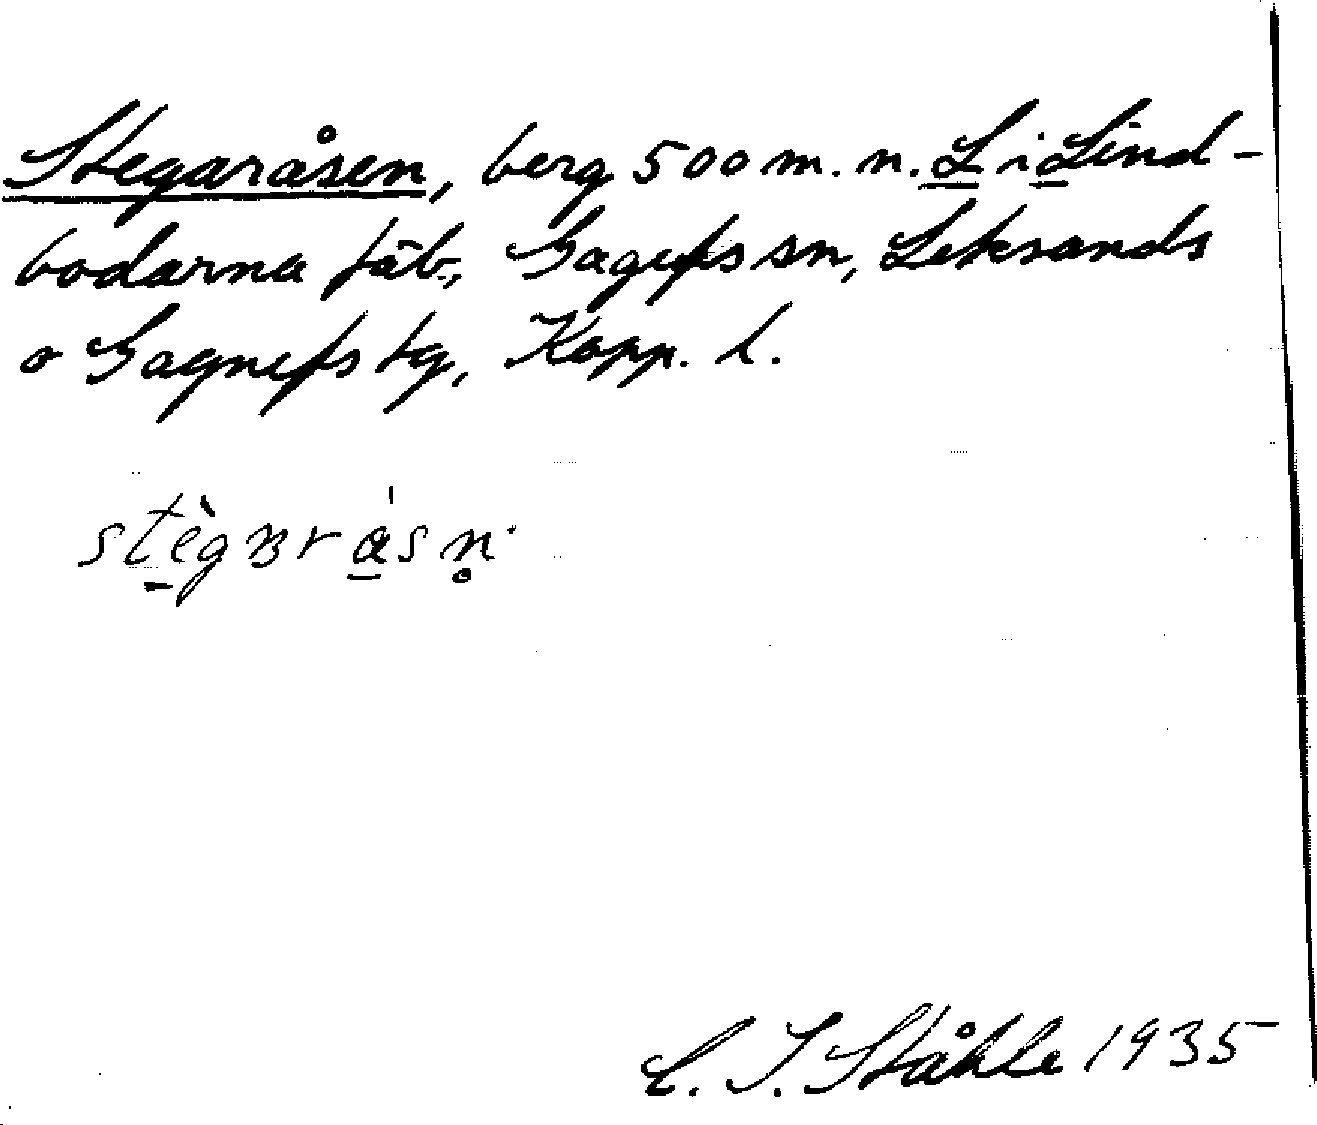 Stegaråsen, berg 500 m. n. L i Lind-
bodarna fäb., Gagefs sn, Leksands
o Gagnefs tg, Kopp. l.
stègɐråsn̥
C. I. Ståhle 1935